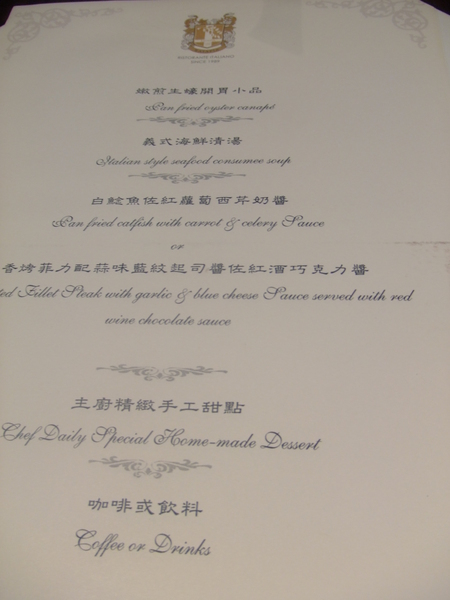 RISTORANTE ITALIANO
嫩煎生蠔開胃小品
Pan fried oyster canapé
義式海鮮清湯
Italian style seafood consumee soup
白鯰魚佐紅蘿蔔西芹奶醬
Pan fried catfish with carrot & celery Sauce
or
香烤菲力配蒜味藍紋起司醬佐紅酒巧克力醬
ted Fillet Steak with garlic & blue cheese Sauce served with red
wine chocolate sauce
主廚精緻手工甜點
Chef Daily Special Home-made Dessert
咖啡或飲料
Coffee or Drinks